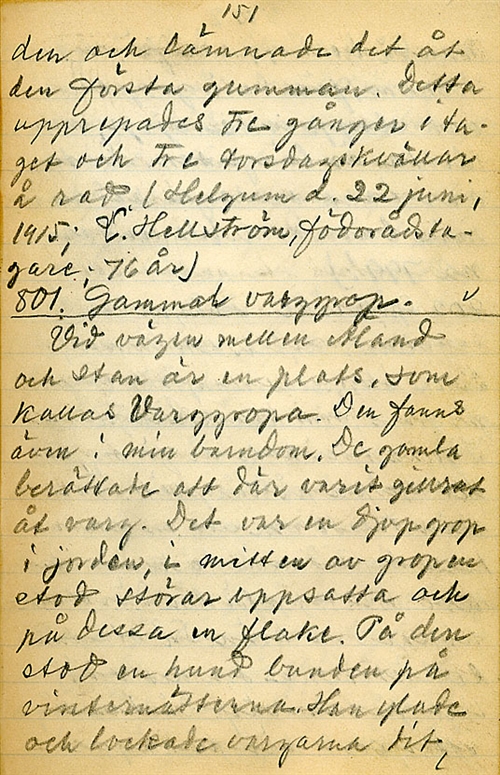 151
den och lämnade det åt
den första gumman. Detta
upprepades tre gånger i ta-
get och tre torsdagskvällar
å rad. (Helgum d. 22 juni,
1915; K. Hellström, födorådsta-
gare; 76 år)
801. Gammal varggrop.
Vid vägen mellen Åland
och Stan är en plats, som
kallas Varggropa. Den fanns
även i min barndom. De gamla
berättade att där varit gillrat
åt varg. Det var en djup grop
i jorden, i mitten av gropen
stod störar uppsatta och
på dessa en flake. På den
stod en hund bunden på
vinternätterna. Han glade
och lockade vargarna dit,